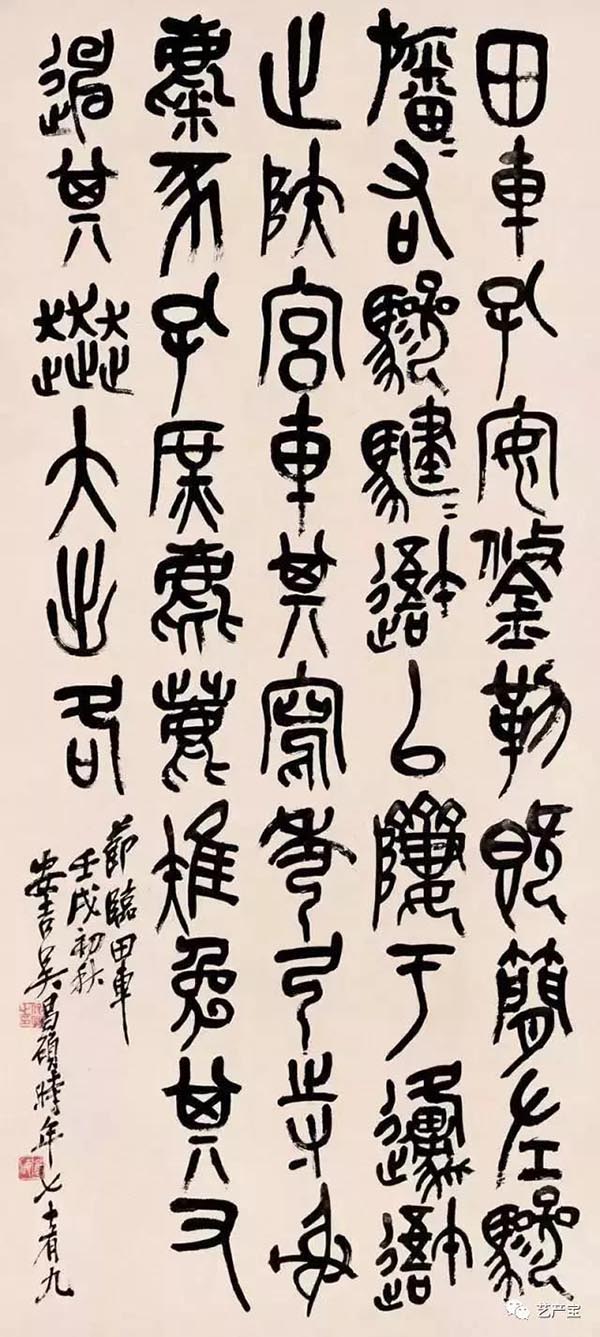 田車孔安鋚勒既簡左驂
旛〻右驂騝〻以隮于邍
止陕宮車其寫秀弓寺射
麋豕孔庶麀鹿雉兔其又
其奔大出各
節臨田車
壬戌初秋
安吉吳昌碩時年七十有九
艺产宝